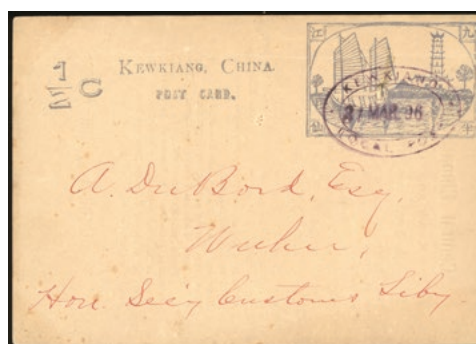 1/2 C
KEWKIANG, CHINA.
POST CARD.
江 九
KEWKIANG
27 MAR. 96
LOCAL POST
A. DuBord, Esq,
Wuhu,
Hon. Secy Customs Liby